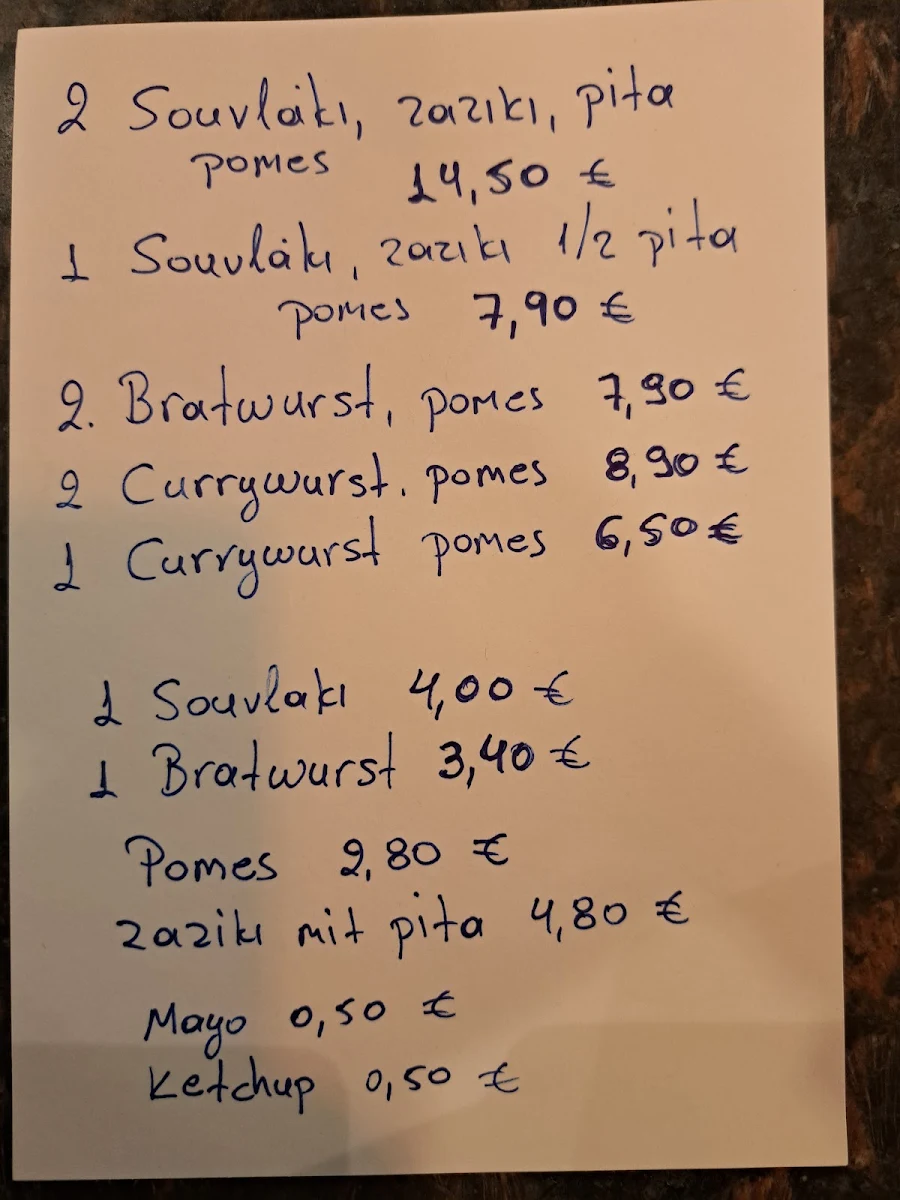 2 Souvláki, zaziki, pita
pomes 14,50 €
1 Souvláki, zaziki 1/2 pita
pomes 7,90 €
2. Bratwurst, pomes 7,90 €
2 Currywurst. pomes 8,90 €
1 Currywurst pomes 6,50 €
1 Souvlaki 4,00 €
1 Bratwurst 3,40 €
Pomes 2,80 €
zaziki mit pita 4,80 €
Mayo 0,50 €
Ketchup 0,50 €